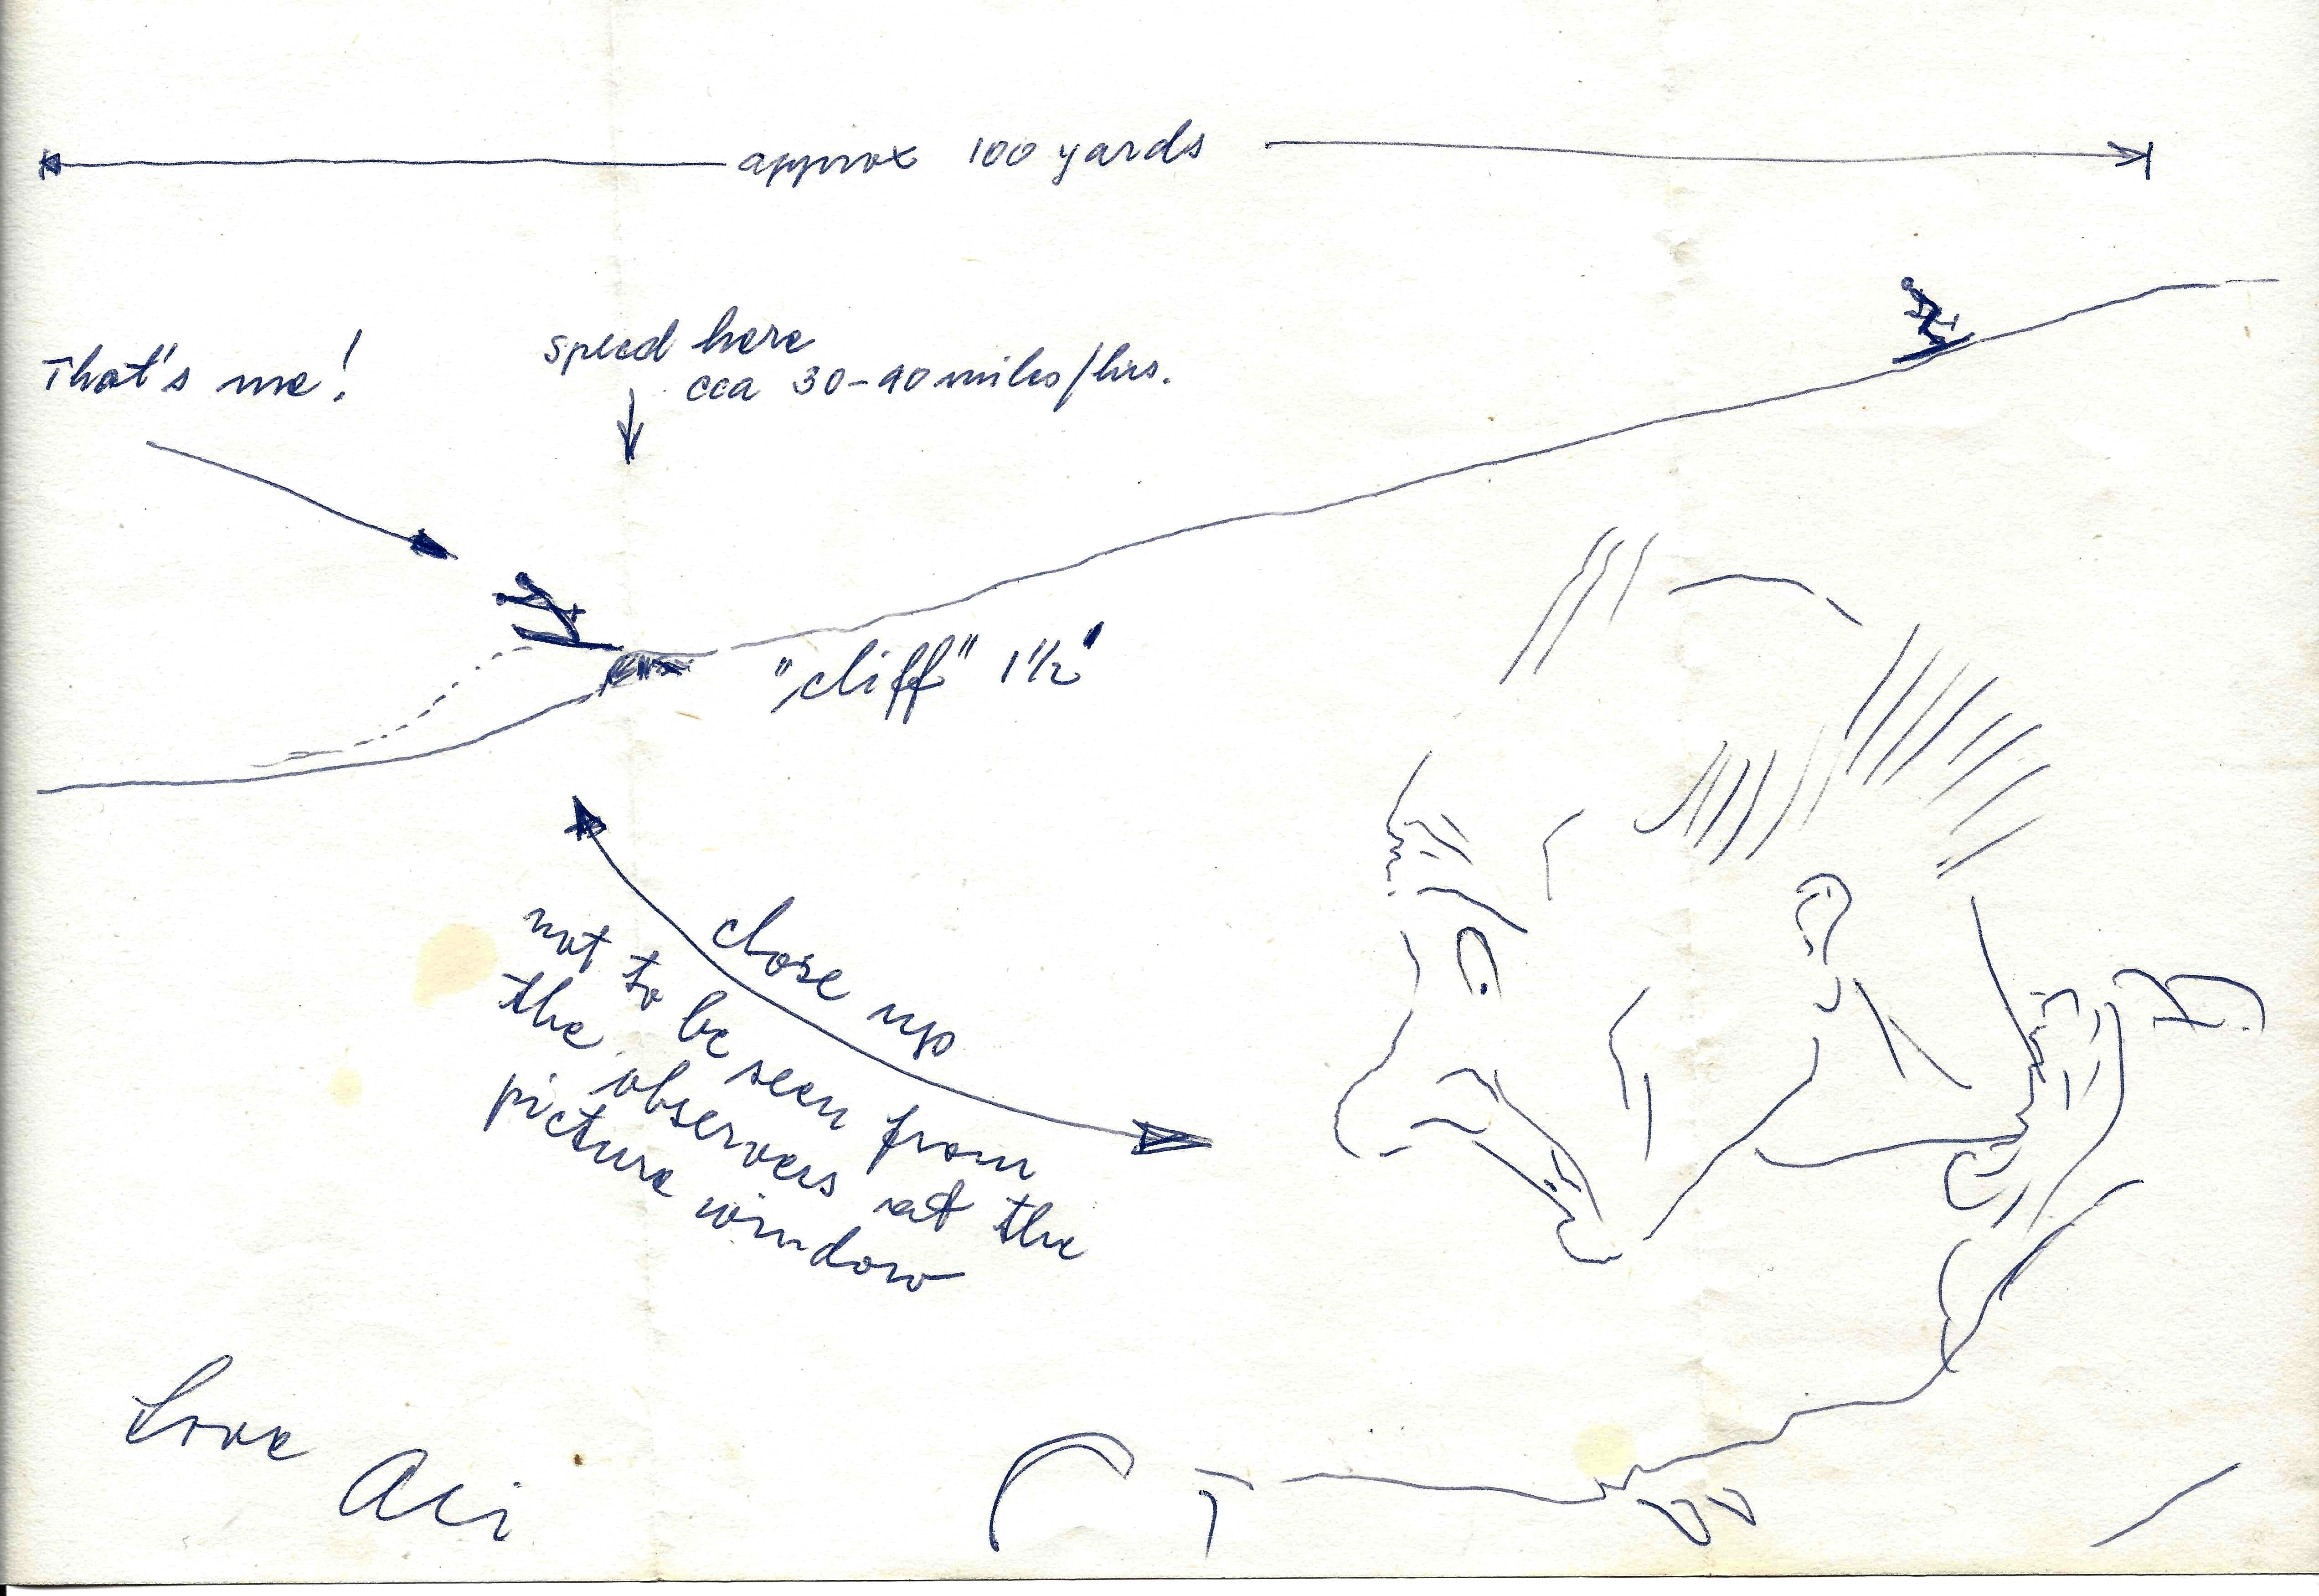 approx 100 yards
That's me!
speed here
cca 30-40 miles/hrs.
"cliff" 1½'
close up
not to be seen from
the observers at the
picture window
Love Aci